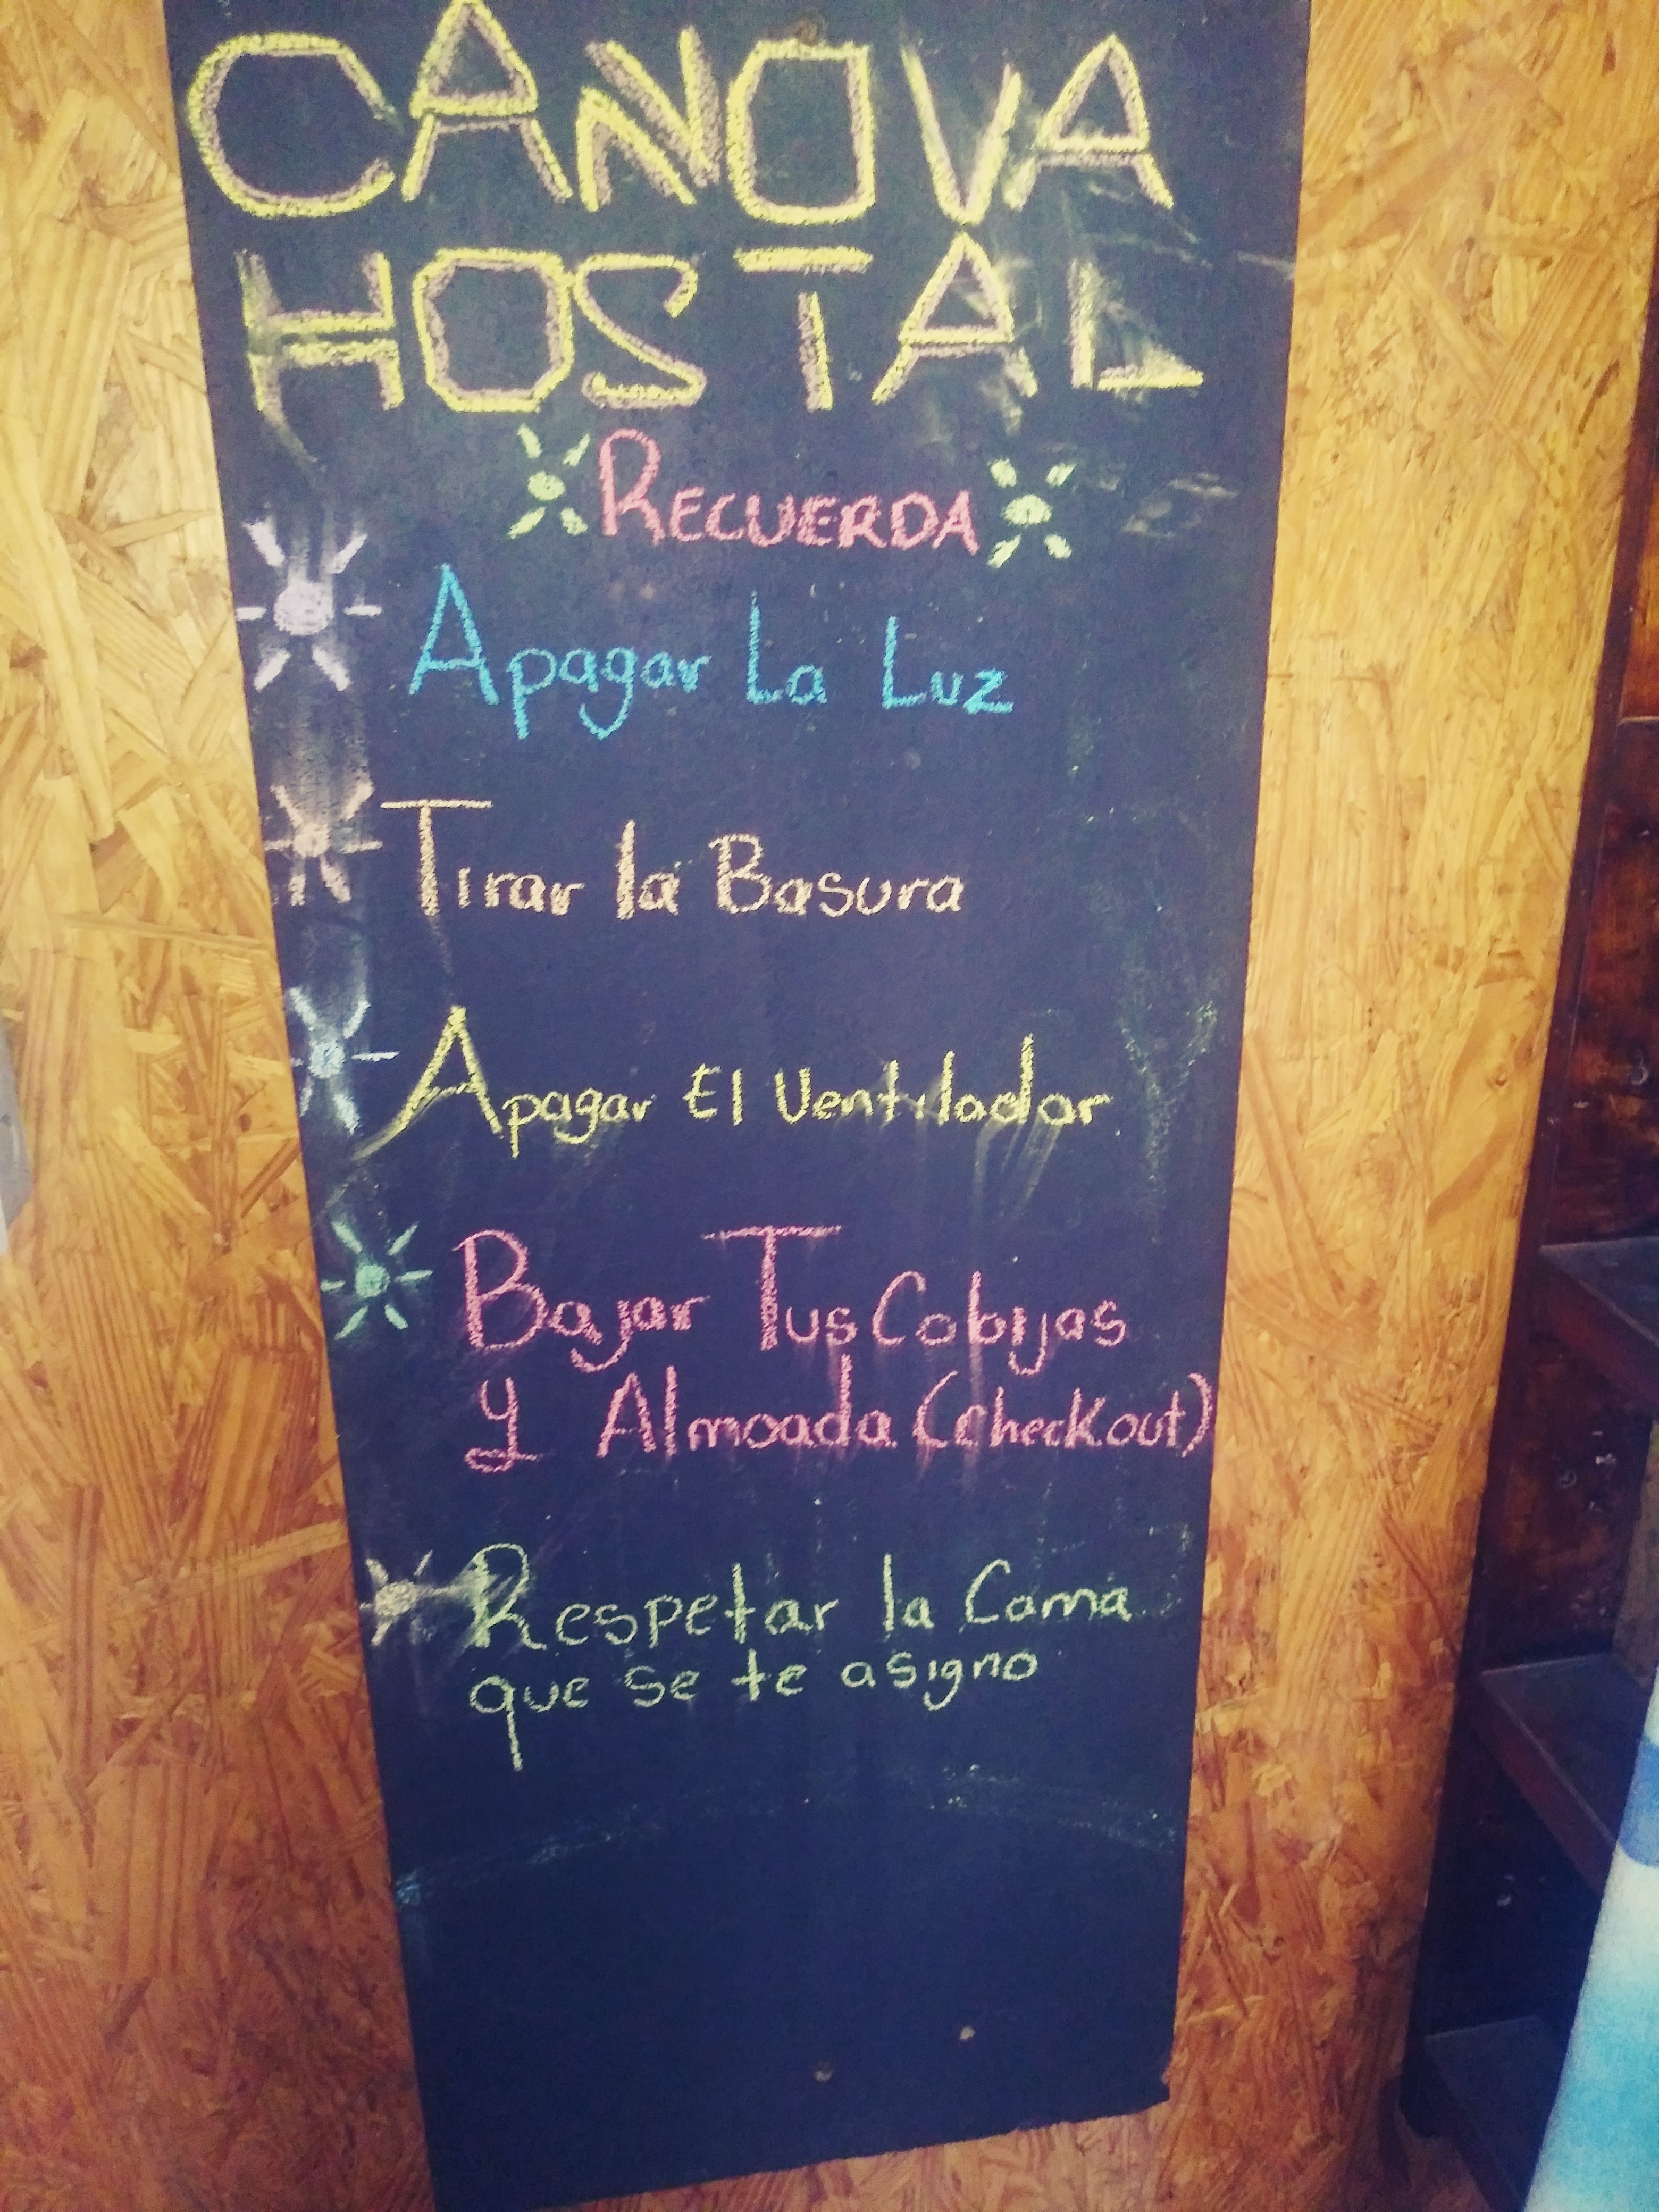 CANOVA
HOSTAL
RECUERDA
Apagar La Luz
Tirar la Basura
Apagar El Ventilador
Bajar Tus Cobijas
y Almoada (Check out)
Respetar la Cama
que se te asigno